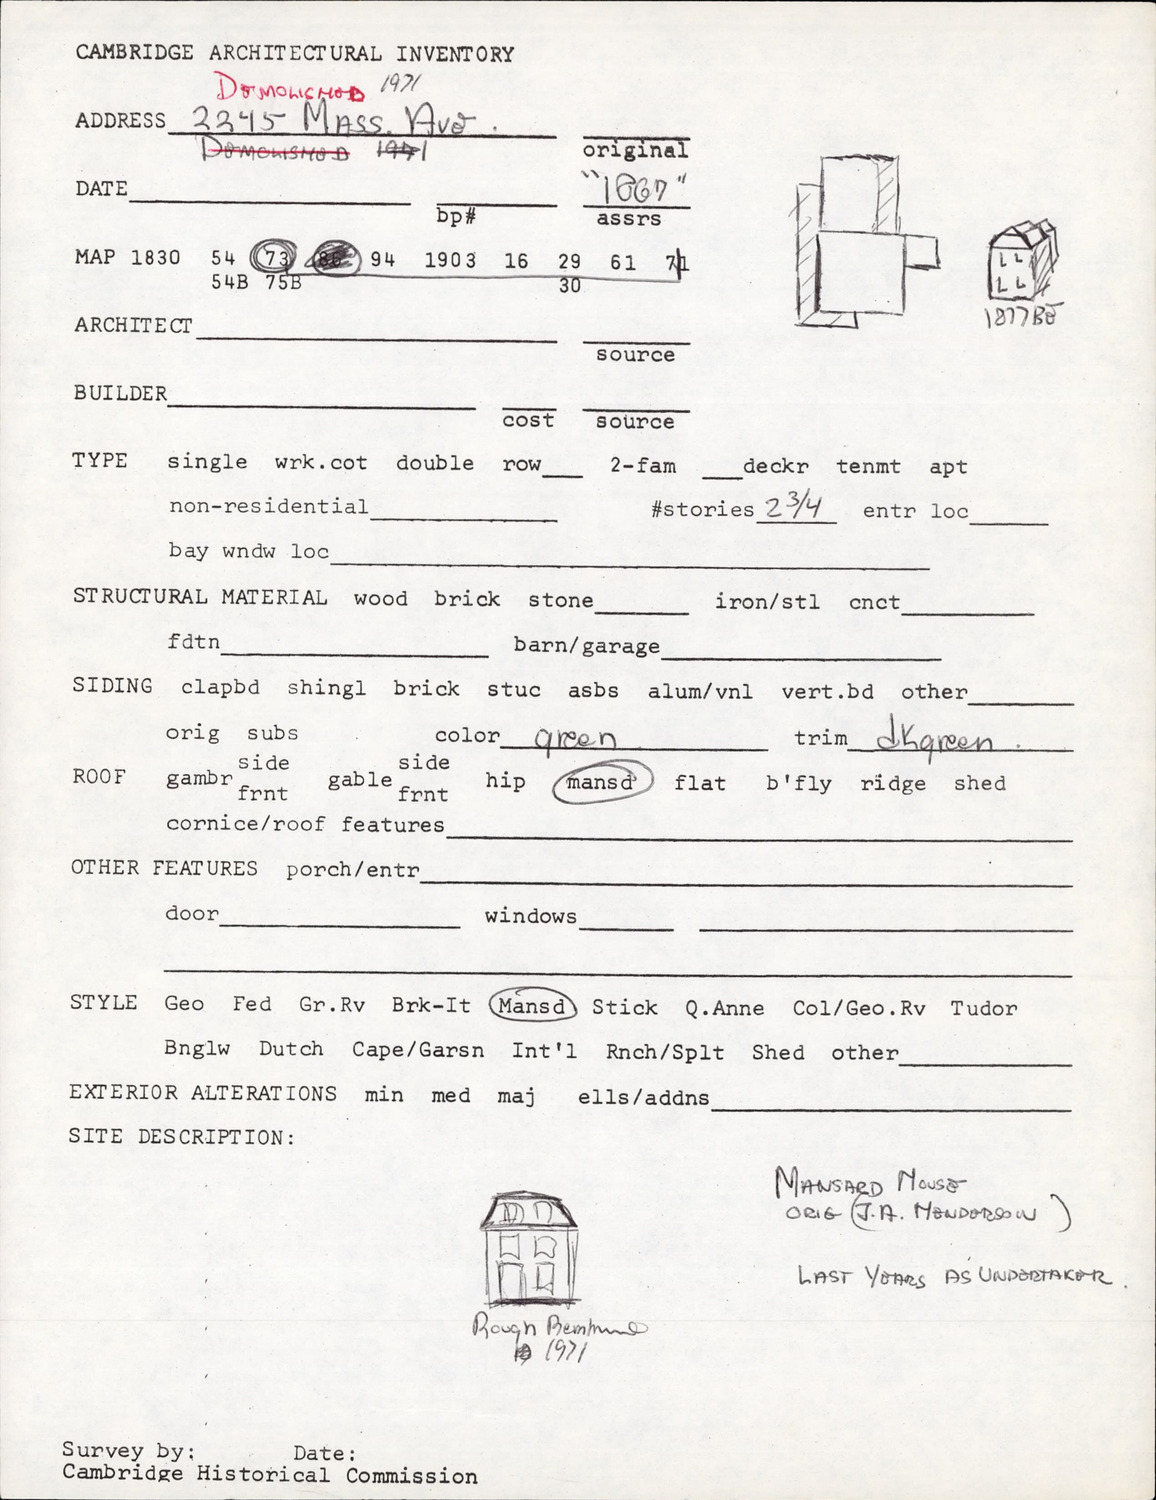 CAMBRIDGE ARCHITECTURAL INVENTORY
DEMOLISHED 1971
ADDRESS 2245 MASS. AVE.
DEMOLISHED 1971 original
DATE "1867"
bp# assrs
MAP 1830 54 73 86 94 1903 16 29 61 71
54B 75B 30
1877 BE
ARCHITECT
source
BUILDER
cost source
TYPE single wrk.cot double row___ 2-fam ___deckr tenmt apt
non-residential #stories 2 3/4 entr loc
bay wndw loc
STRUCTURAL MATERIAL wood brick stone iron/stl cnct
fdtn barn/garage
SIDING clapbd shingl brick stuc asbs alum/vnl vert.bd other
orig subs color green trim dkgreen
side side
ROOF gambr gable hip mansd flat b'fly ridge shed
frnt frnt
cornice/roof features
OTHER FEATURES porch/entr
door windows
STYLE Geo Fed Gr.Rv Brk-It Mansd Stick Q.Anne Col/Geo.Rv Tudor
Bnglw Dutch Cape/Garsn Int'l Rnch/Splt Shed other
EXTERIOR ALTERATIONS min med maj ells/addns
SITE DESCRIPTION:
MANSARD HOUSE
ORIG (J.A. HENDERSON)
LAST YEARS AS UNDERTAKER.
Rough
1971
Survey by: Date:
Cambridge Historical Commission